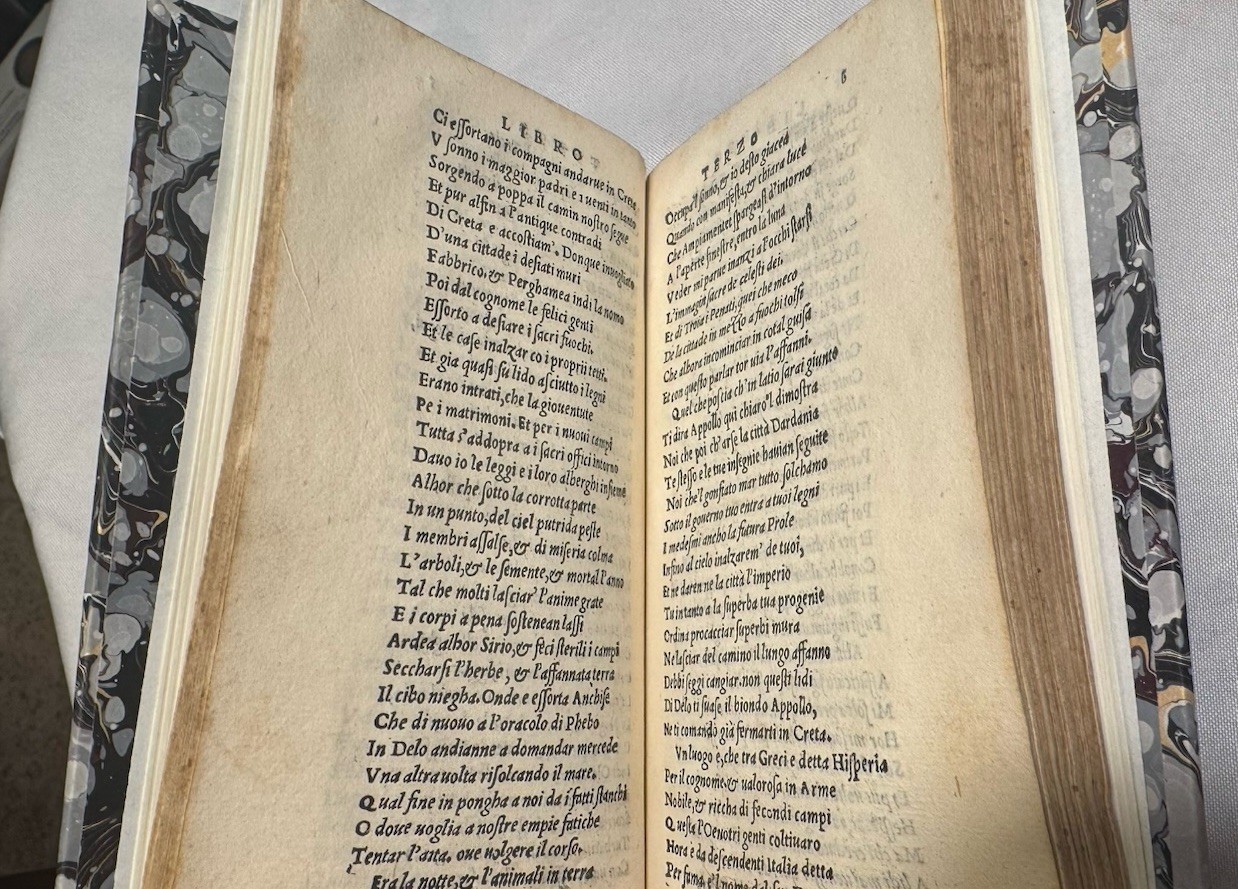 LIBRO
Ci essortano i compagni andarne in Creta
V sonno i maggior padri e i uenti in tanto
Sorgendo a poppa il camin nostro segue
Et pur alfin a l'antique contradi
Di Creta e accostiam'. Donque inuogliato
D'una cittade i desiati muri
Fabbrico, & Perghamea indi la nomo
Poi dal cognome le felici genti
Essorto a desiare i sacri fuochi.
Et le case inalzar co i proprii tetti.
Et gia quasi su lido asciutto i legni
Erano intrati, che la giouentute
Pe i matrimoni. Et per i nuoui campi
Tutta s'addopra a i sacri offici intorno
Dauo io le leggi e i loro alberghi insieme
Alhor che sotto la corrotta parte
In un punto, del ciel putrida peste
I membri assalse, & di miseria colma
L'arboli, & le semente, & mortal l'anno
Tal che molti lasciar' l'anime grate
E i corpi a pena sostenean lassi
Ardea alhor Sirio, & feci sterili i campi
Seccharsi l'herbe, & l'affannata terra
Il cibo niegha. Onde e essorta Anchise
Che di nuouo a l'oracolo di Phebo
In Delo andianne a domandar mercede
Vna altra uolta risolcando il mare.
Qual fine in pongha a noi da i fatti stanchi
O doue uoglia a nostre empie fatiche
Tentar l'aita. oue uolgere il corso.
Era la notte, & l'animali in terra
TERZO
6
Occupa'l sonno, & io desto giacea
Quando con manifesta, & chiara luce
Che Ampiamente spargeasi d'intorno
A l'aperte finestre, entro la luna
Veder mi parue inanzi a l'occhi starsi
L'immagin sacre de celesti dei.
Et di Troia i Penati, quei che meco
De la cittade in mezzo a fuochi tolsi
Che alhora incominciar in cotal guisa
Et con questo parlar tor uia l'affanni.
Quel che poscia ch'in latio sarai giunto
Ti dira Appollo qui chiaro'l dimostra
Noi che poi ch'arse la città Dardania
Te stesso e le tue insegnie hauian seguite
Noi che'l gonfiato mar tutto solchamo
Sotto il gouerno tuo entra a tuoi legni
I medesmi anchò la futura Prole
Infino al cielo inalzarem' de tuoi,
Et ne daren ne la città l'imperio
Tu intanto a la superba tua progenie
Ordina procacciar superbi mura
Ne lasciar del camino il lungo affanno
Debbi seggi cangiar. non questi lidi
Di Delo ti suase il biondo Appollo,
Ne ti comandò già fermarti in Creta.
Vn luogo e, che tra Greci e detta Hisperia
Per il cognome, & ualorosa in Arme
Nobile, & riecha di fecondi campi
Questa l'Oenotri genti coltiuaro
Hora e da descendenti Italia detta
Per fuma, e'l nome